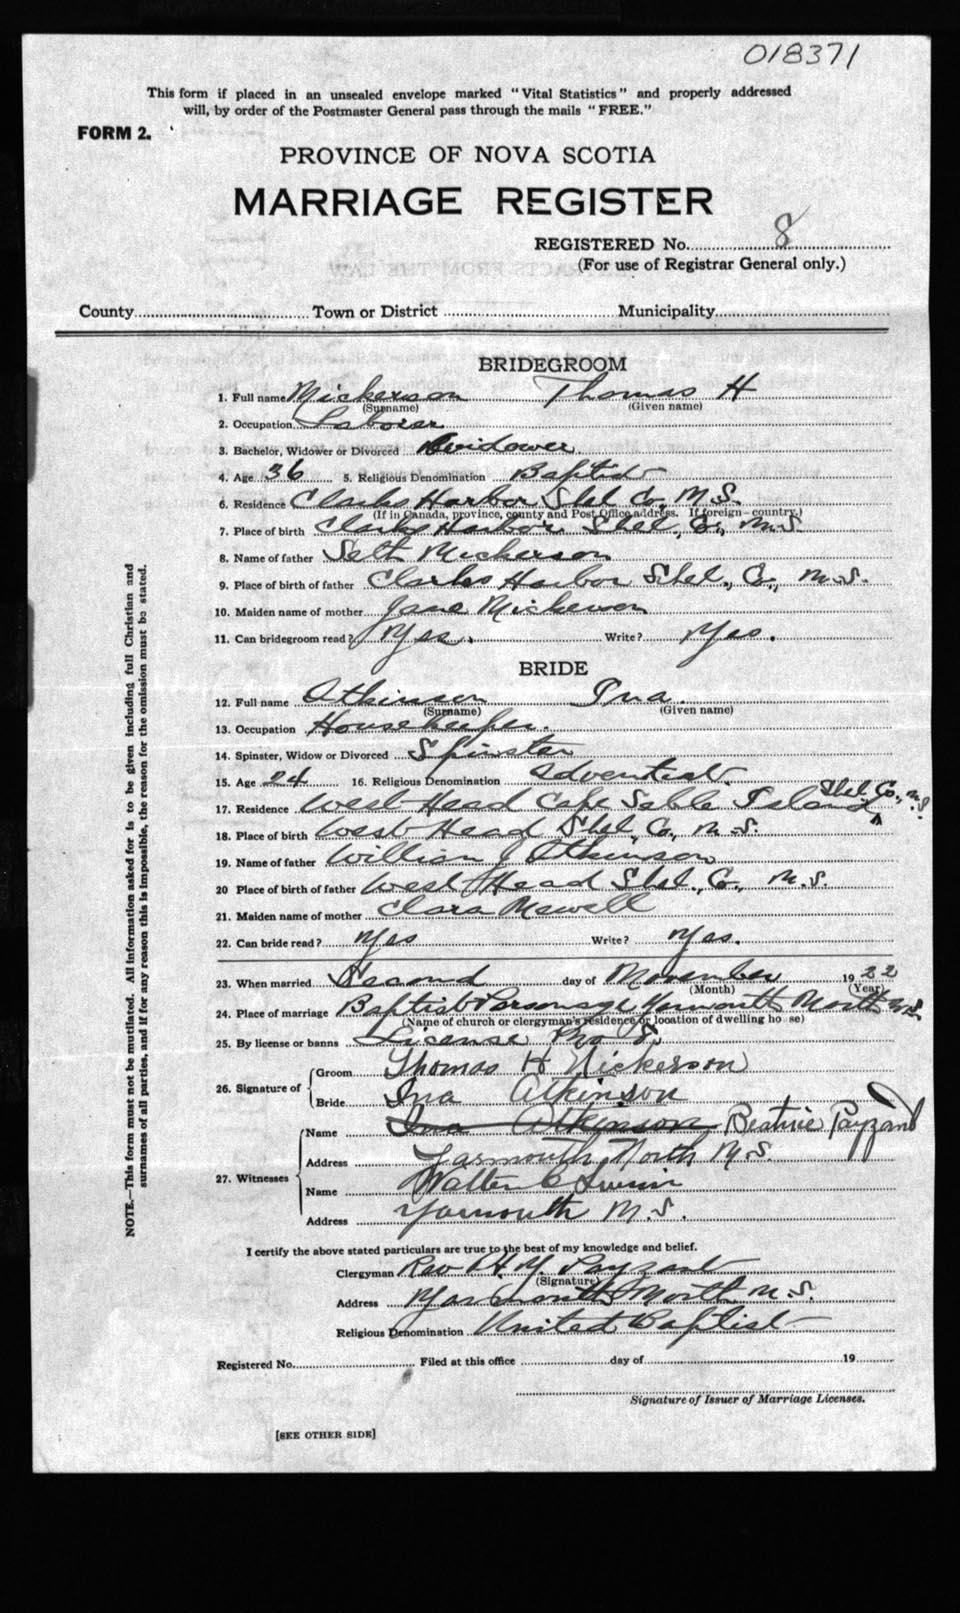 018371
This form if placed in an unsealed envelope marked "Vital Statistics" and properly addressed
will, by order of the Postmaster General pass through the mails "FREE."
FORM 2.
PROVINCE OF NOVA SCOTIA
MARRIAGE REGISTER
REGISTERED No. 8
(For use of Registrar General only.)
County Town or District Municipality
BRIDEGROOM
1. Full name Nickerson Thomas H
(Surname) (Given name)
2. Occupation Laborer
3. Bachelor, Widower or Divorced Widower
4. Age 36 5. Religious Denomination Baptist
6. Residence Clarks Harbor Shel. Co. N.S.
(If in Canada, province, county and Post Office address. If foreign—country.)
7. Place of birth Clarks Harbor Shel., Co., N.S.
8. Name of father Seth Nickerson
9. Place of birth of father Clarks Harbor Shel., Co., N.S.
10. Maiden name of mother Jane Nickerson
11. Can bridegroom read? Yes. Write? Yes.
BRIDE
12. Full name Atkinson Ina.
(Surname) (Given name)
13. Occupation Housekeeper.
14. Spinster, Widow or Divorced Spinster
15. Age 24 16. Religious Denomination Adventist.
17. Residence West Head Cape Sable Island Shel. Co., N.S.
18. Place of birth West Head Shel. Co., N.S.
19. Name of father William J Atkinson
20 Place of birth of father West Head Shel., Co., N.S.
21. Maiden name of mother Clara Newell
22. Can bride read? Yes Write? Yes.
23. When married Second day of November 1922
(Month) (Year)
24. Place of marriage Baptist Parsonage Yarmouth North N.S.
(Name of church or clergyman's residence or location of dwelling ho se)
25. By license or banns License No 8.
26. Signature of Groom Thomas H Nickerson
Bride Ina Atkinson
27. Witnesses Name Ina Atkinson Beatrice Payzant
Address Yarmouth North N.S.
Name Walter C
Address Yarmouth N.S.
I certify the above stated particulars are true to the best of my knowledge and belief.
Clergyman Rev H. Y. Payzant
(Signature)
Address Yarmouth North N.S.
Religious Denomination United Baptist
Registered No. Filed at this office day of 19
Signature of Issuer of Marriage Licenses.
[SEE OTHER SIDE]
NOTE.—This form must not be mutilated. All information asked for is to be given including full Christian and
surnames of all parties, and if for any reason this is impossible, the reason for the omission must be stated.